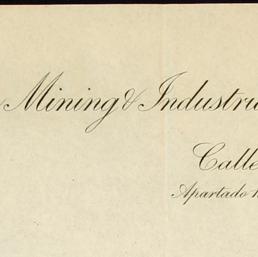 Mining & Industri
Calle
Apartado